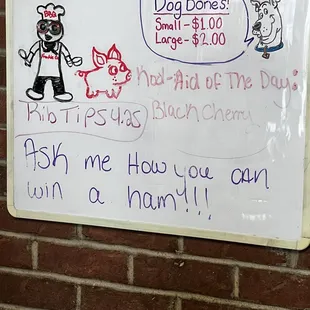 Dog Bones!
Small - $1.00
Large - $2.00
BBQ
Kool-Aid of The Day:
Rib Tips 4.25
Black Cherry
Ask me How you can
win a ham!!!